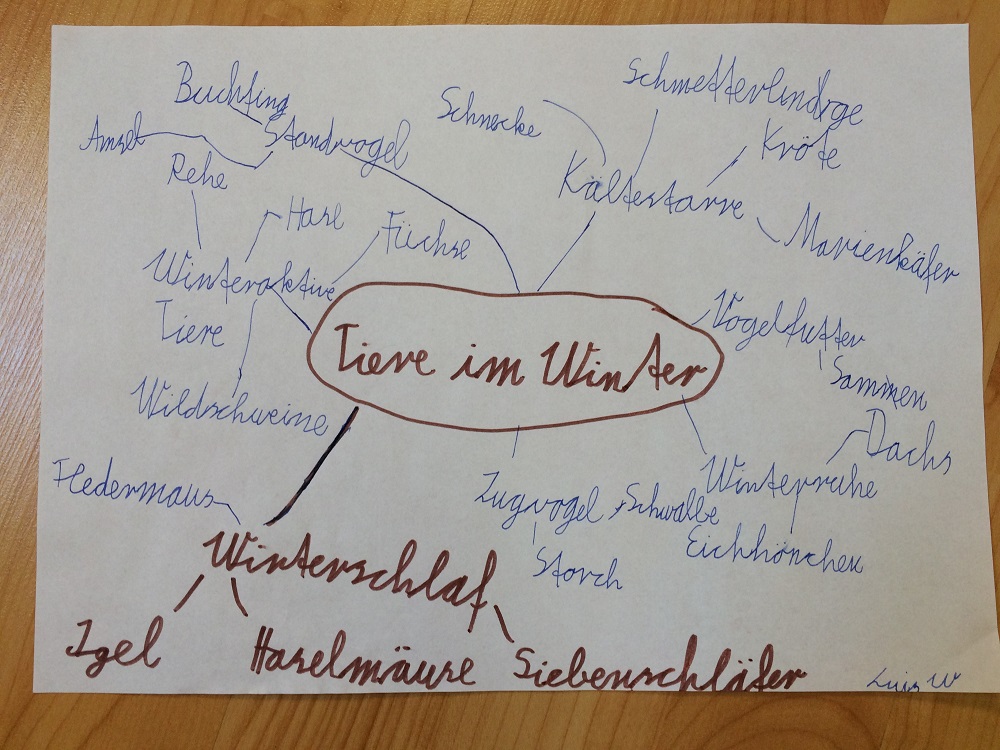 Schmetterlindge
Buchfing
Schnecke
Amsel
Standvogel
Kröte
Rehe
Kältestarre
Hase
Füchse
Marienkäfer
Winteraktive
Tiere
Vogelfutter
Tiere im Winter
Sammen
Wildschweine
Dachs
Fledermaus
Winterruhe
Zugvogel
Schwalbe
Winterschlaf
Eichhönchen
Storch
Igel
Haselmäuse
Siebenschläfer
Luis W